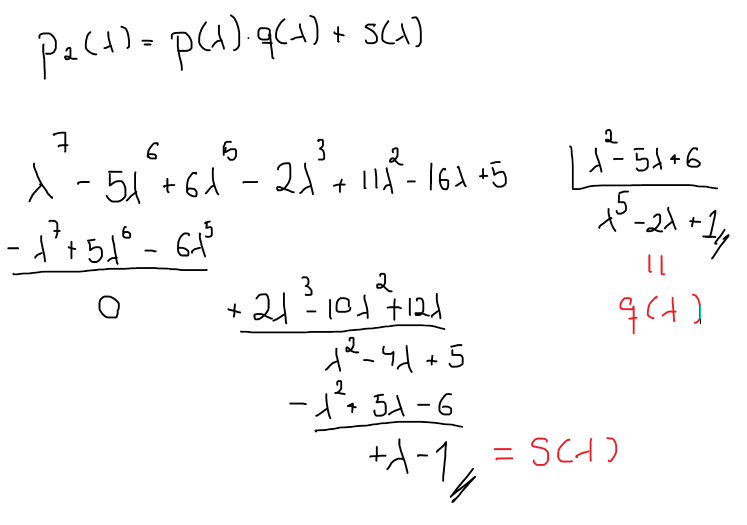 p₂(λ) = p(λ)·q(λ) + S(λ)
λ⁷ - 5λ⁶ + 6λ⁵ - 2λ³ + 11λ² - 16λ + 5 |λ² - 5λ + 6
- λ⁷ + 5λ⁶ - 6λ⁵ λ⁵ - 2λ + 1
0 + 2λ³ - 10λ² + 12λ = q(λ)
λ² - 4λ + 5
- λ² + 5λ - 6
+λ - 1 = S(λ)